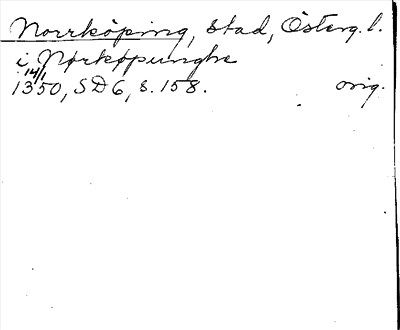 Norrköping, stad, Österg. l.
i Nørkøpunghe
14/1
1350, SD 6, s. 158. orig.